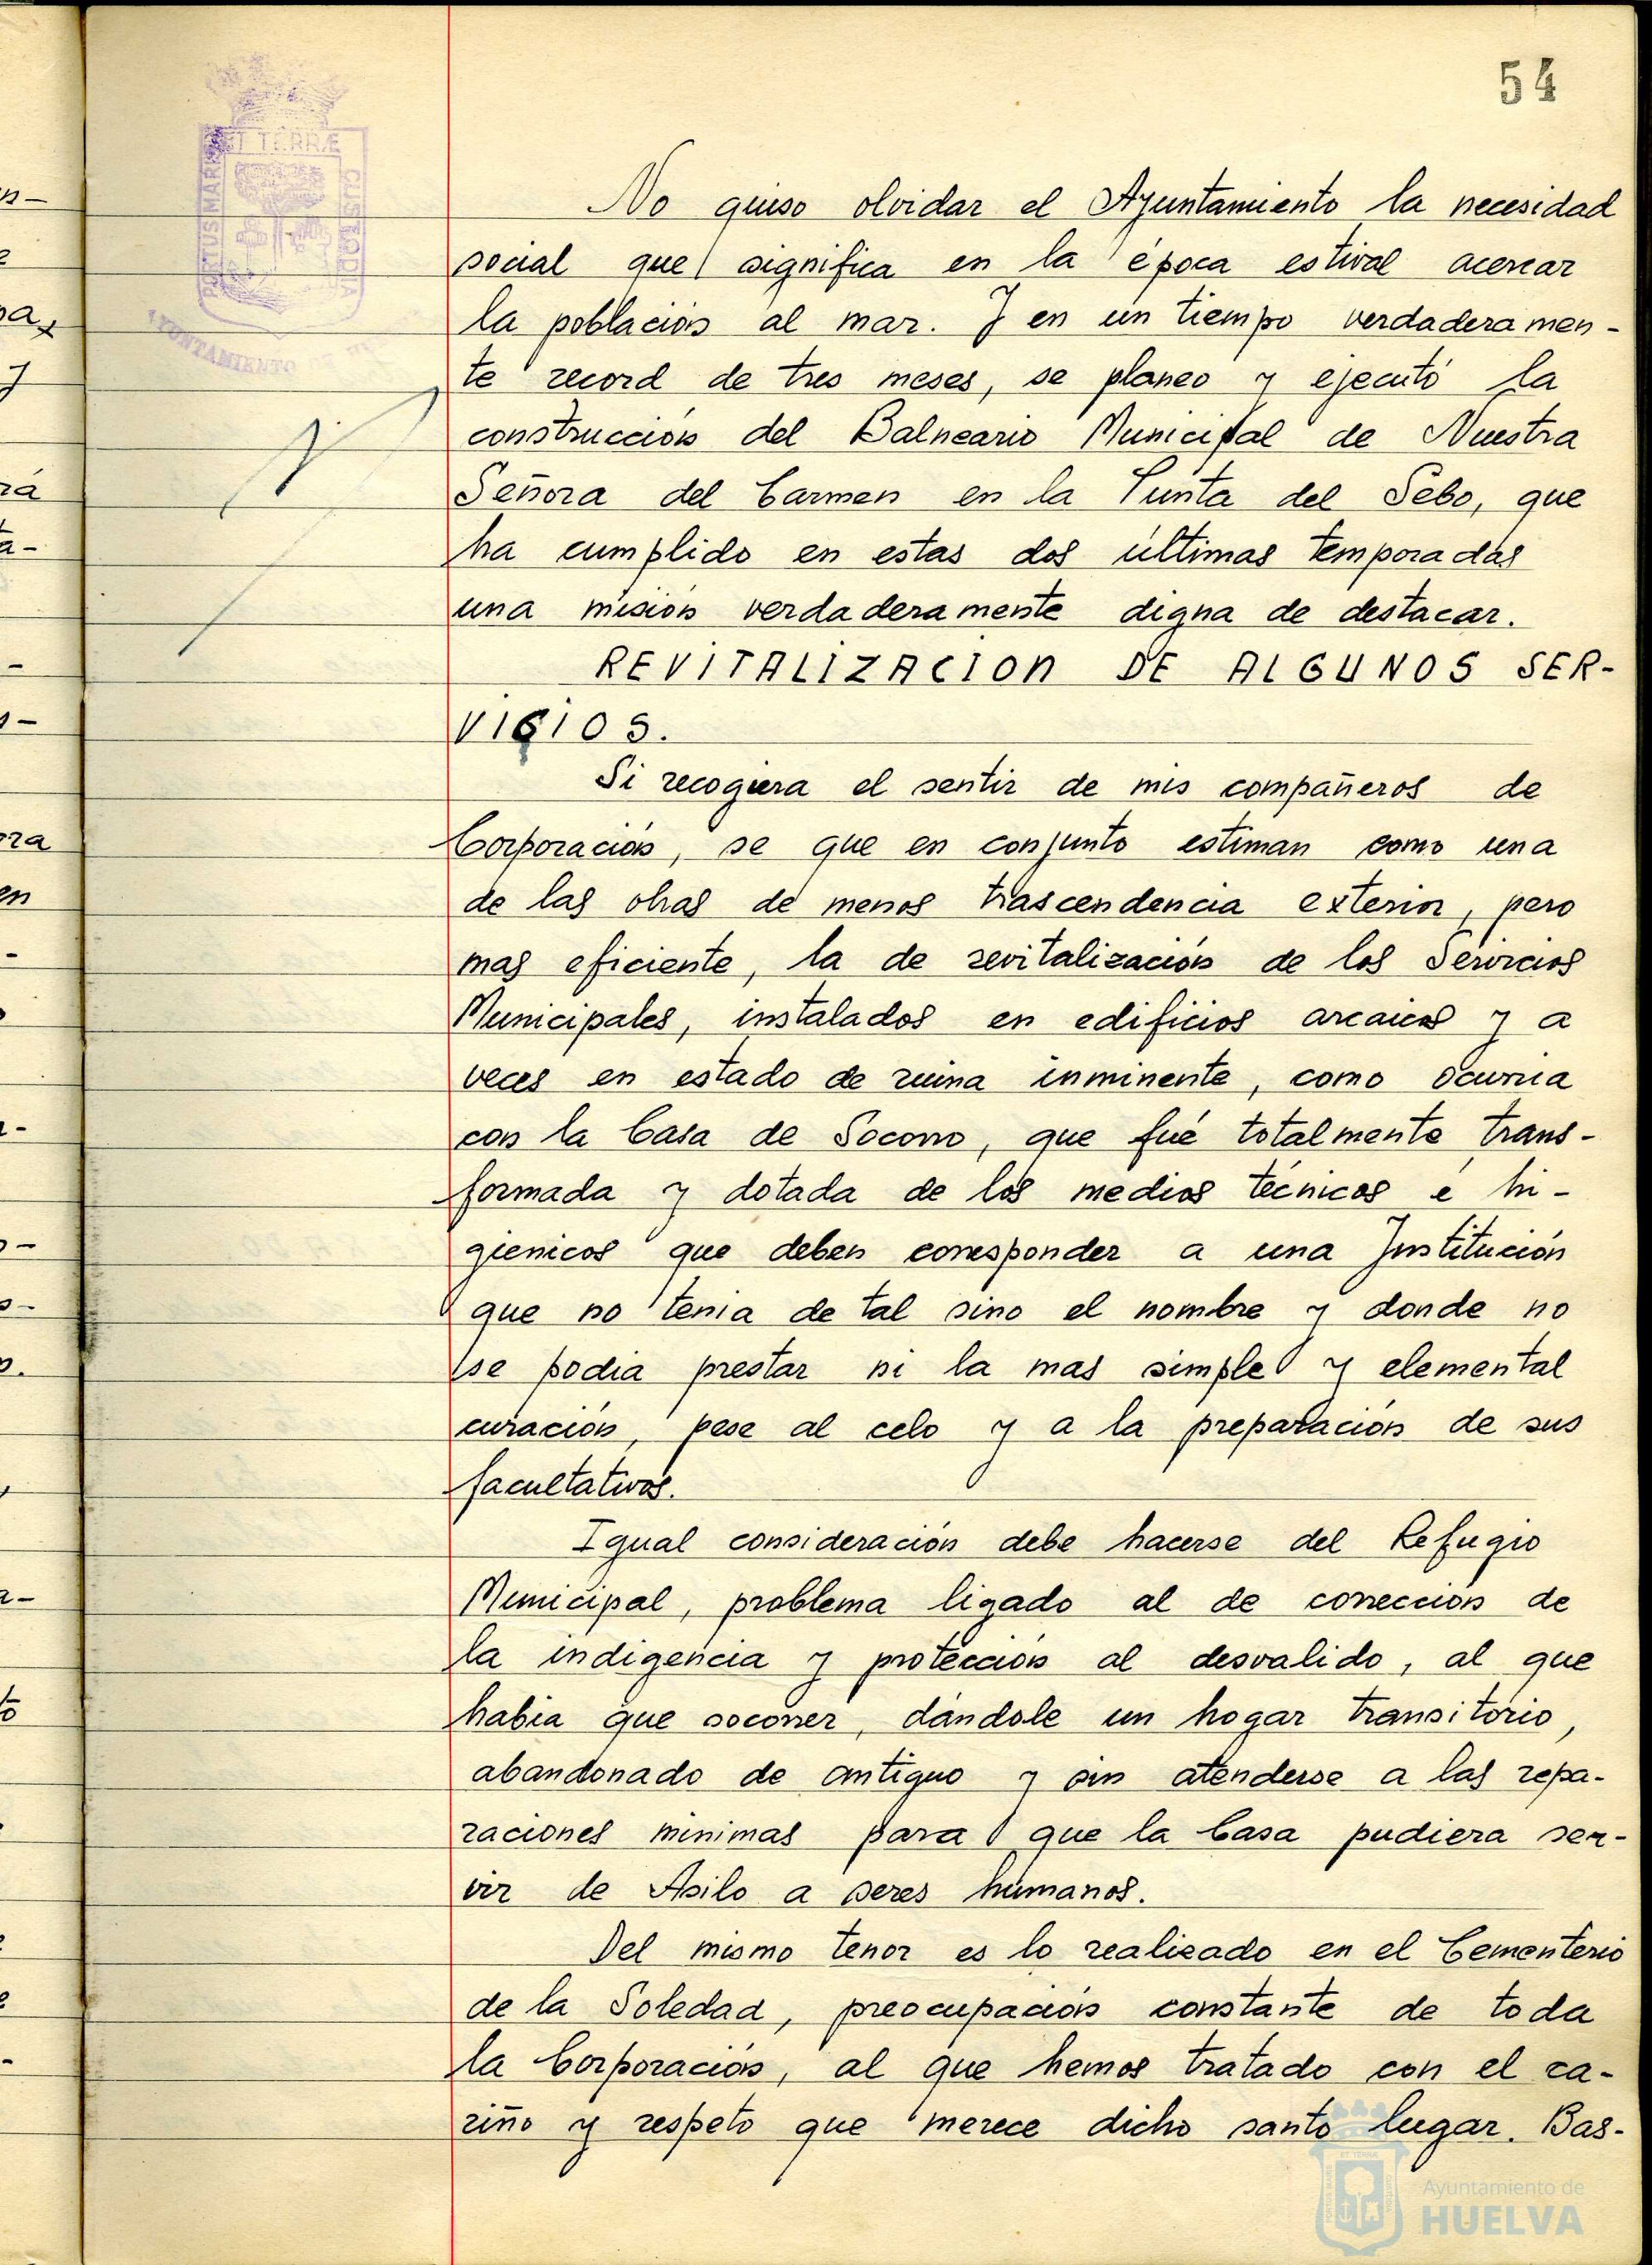 54
ET TERRÆ
PORTUS MARIS
CUSTODIA
AYUNTAMIENTO
No quiso olvidar el Ayuntamiento la necesidad
social que significa en la época estival acercar
la población al mar. Y en un tiempo verdaderamen-
te record de tres meses, se planeo y ejecutó la
construcción del Balneario Municipal de Nuestra
Señora del Carmen en la Punta del Sebo, que
ha cumplido en estas dos últimas temporadas
una misión verdaderamente digna de destacar.
REVITALIZACION DE ALGUNOS SER-
VICIOS.
Si recogiera el sentir de mis compañeros de
Corporación, se que en conjunto estiman como una
de las obras de menos trascendencia exterior, pero
mas eficiente, la de revitalización de los Servicios
Municipales, instalados en edificios arcaicos y a
veces en estado de ruina inminente, como ocurria
con la Casa de Socorro, que fué totalmente trans-
formada y dotada de los medios técnicos e hi-
gienicos que deben corresponder a una Institución
que no tenia de tal sino el nombre y donde no
se podia prestar ni la mas simple y elemental
curación, pese al celo y a la preparación de sus
facultativos.
Igual consideración debe hacerse del Refugio
Municipal, problema ligado al de corrección de
la indigencia y protección al desvalido, al que
habia que socorrer, dándole un hogar transitorio,
abandonado de antiguo y sin atenderse a las repa-
raciones minimas para que la Casa pudiera ser-
vir de Asilo a seres humanos.
Del mismo tenor es lo realizado en el Cementerio
de la Soledad, preocupación constante de toda
la Corporación, al que hemos tratado con el ca-
riño y respeto que merece dicho santo lugar. Bas-
Ayuntamiento de
HUELVA